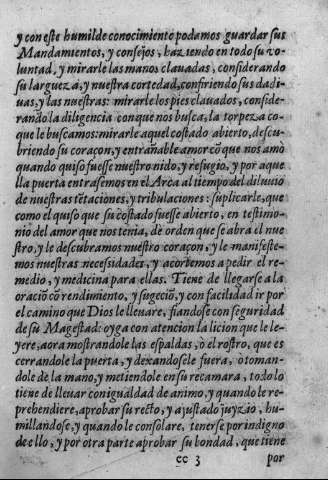 y con este humilde conocimiento podamos guardar sus
Mandamientos, y consejos, haziendo en todo su vo-
luntad, y mirarle las manos clauadas, considerando
su largueza, y nuestra cortedad, confiriendo sus dadi-
uas, y las nuestras: mirarle los pies clauados, conside-
rando la diligencia con que nos busca, la torpeza cō-
que le buscamos: mirarle aquel costado abierto, descu-
briendo su coraçon, y entrañable amor cō que nos amò
quando quiso fuesse nuestro nido, y refugio, y por aque
lla puerta entrasemos en el Arca al tiempo del diluuio
de nuestras tētaciones, y tribulaciones: suplicarle, que
como el quiso que su costado fuesse abierto, en testimo-
nio del amor que nos tenia, dè orden que se abra el nue
stro, y le descubramos nuestro coraçon, y le manifeste-
mos nuestras necessidades, y acertemos a pedir el re-
medio, y medicina para ellas. Tiene de llegarse a la
oraciō cō rendimiento, y sugeciō, y con facilidad ir por
el camino que Dios le lleuare, fiandose con seguridad
de su Magestad: oyga con atencion la licion que le le-
yere, aora mostrandole las espaldas, ò el rostro, que es
cerrandole la puerta, y dexandosele fuera, ò toman-
dole de la mano, y metiendole en su recamara, todo lo
tiene de lleuar con igualdad de animo, y quando le re-
prehendiere, aprobar su recto, y ajustado juyzio, hu-
millandose, y quando le consolare, tenerse por indigno
de ello, y por otra parte aprobar su bondad, que tiene
cc 3 por